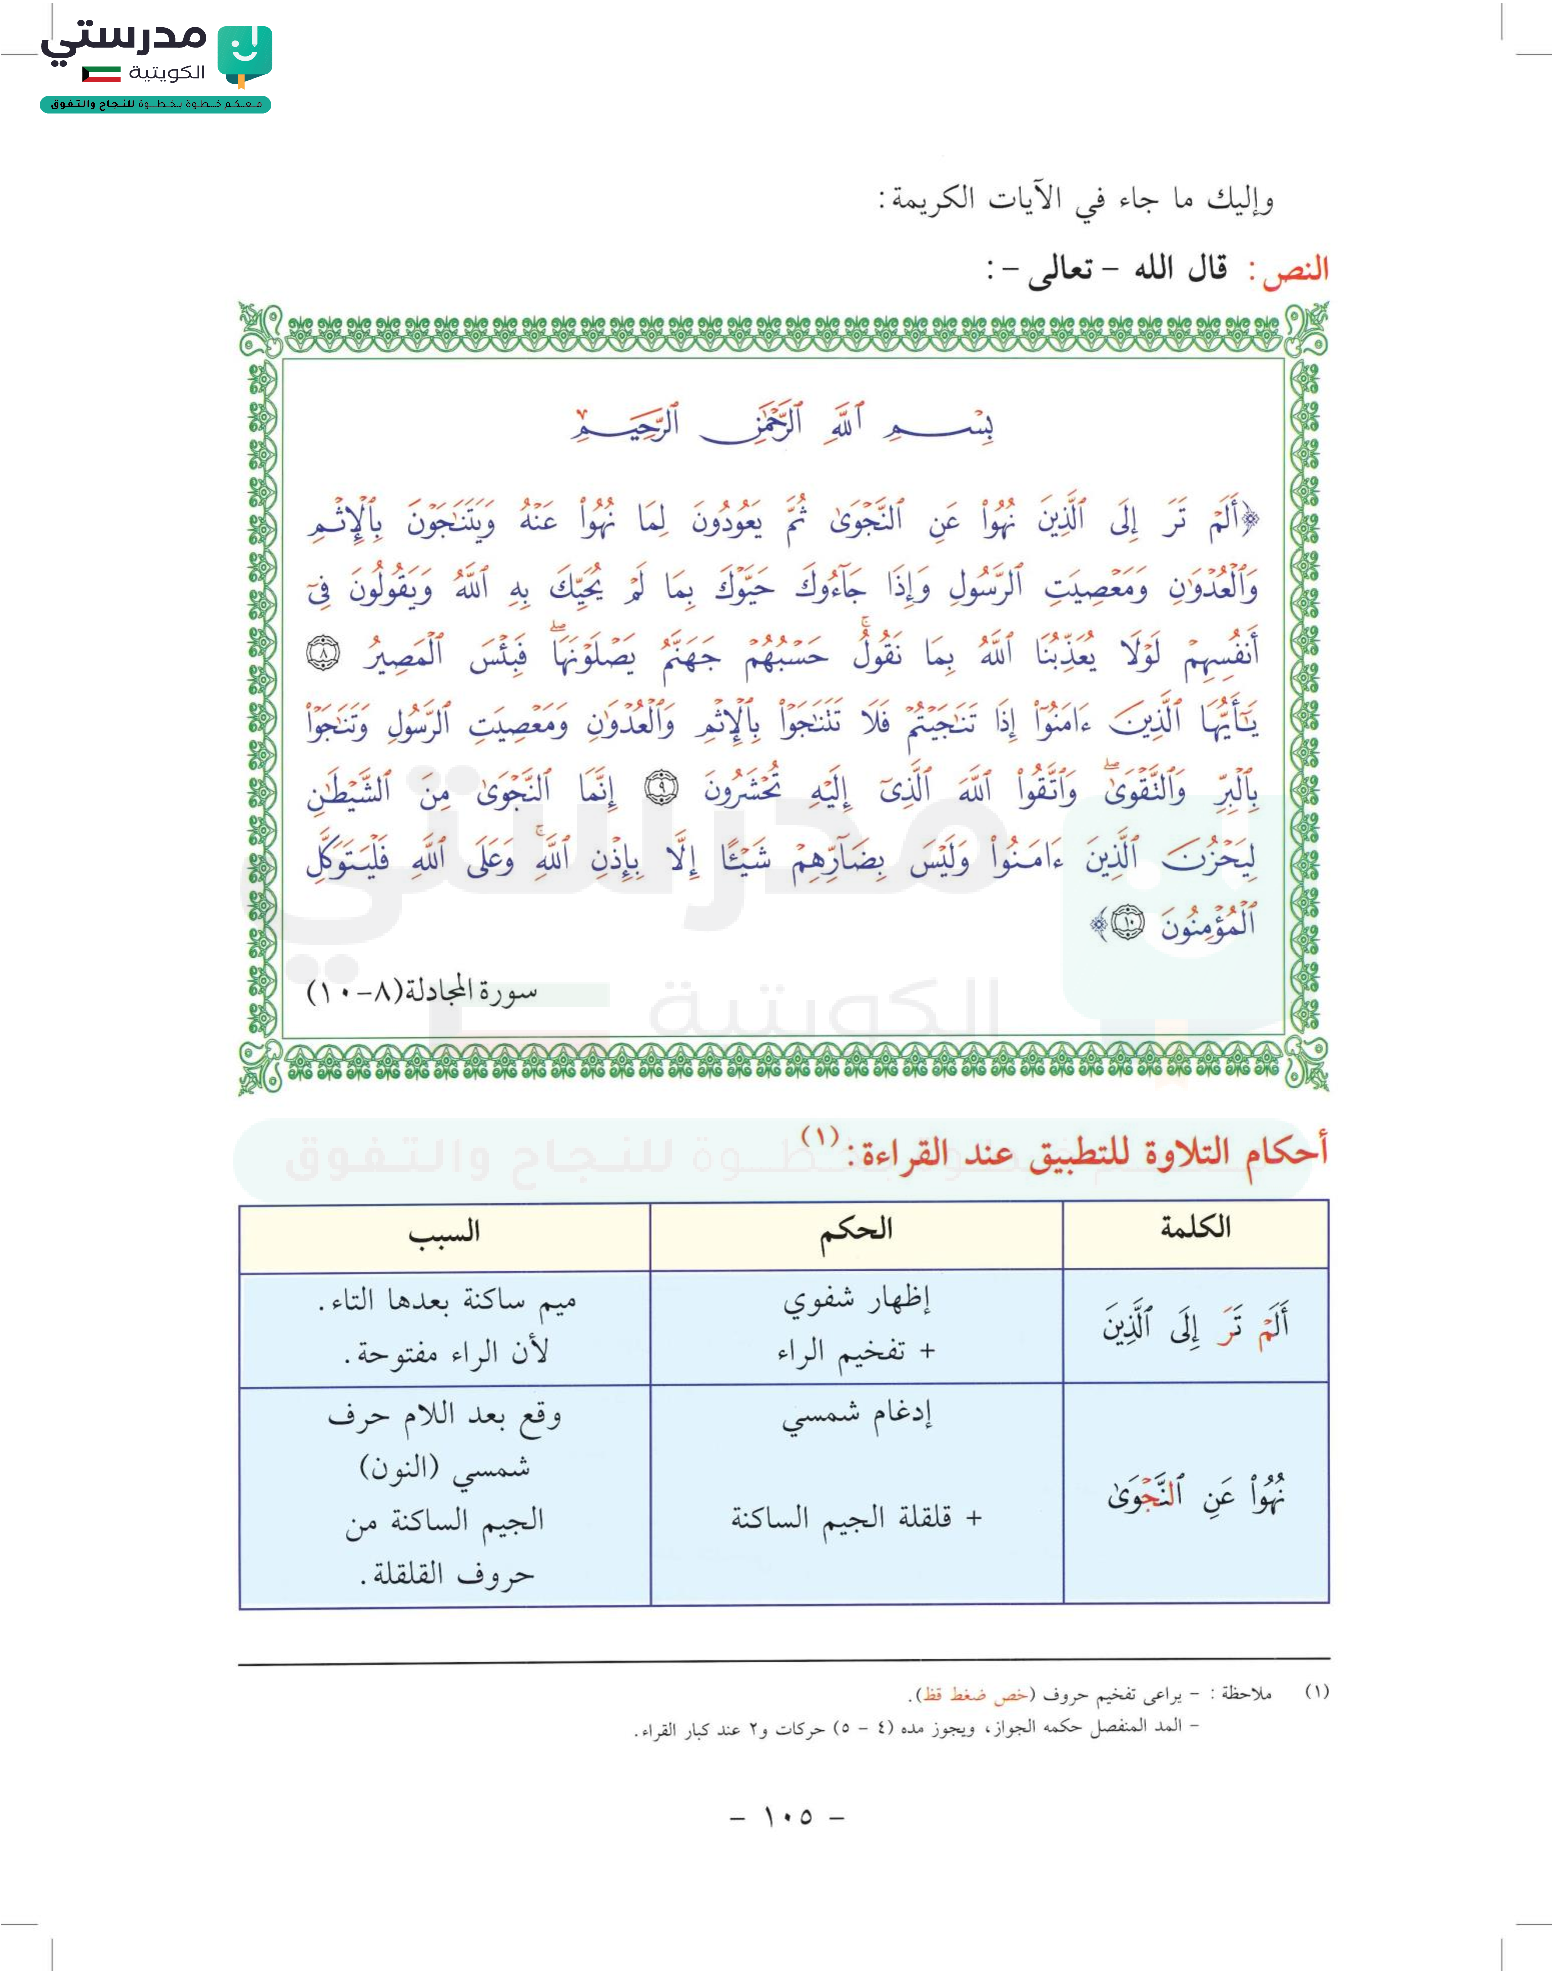 مدرستي
الكويتية
معكم خطوة بخطوة للنجاح والتفوق
وإليك ما جاء في الآيات الكريمة:
النص: قال الله – تعالى –:
بِسْمِ ٱللَّهِ ٱلرَّحْمَٰنِ ٱلرَّحِيمِ
﴿أَلَمْ تَرَ إِلَى ٱلَّذِينَ نُهُوا۟ عَنِ ٱلنَّجْوَىٰ ثُمَّ يَعُودُونَ لِمَا نُهُوا۟ عَنْهُ وَيَتَنَٰجَوْنَ بِٱلْإِثْمِ
وَٱلْعُدْوَٰنِ وَمَعْصِيَتِ ٱلرَّسُولِ وَإِذَا جَآءُوكَ حَيَّوْكَ بِمَا لَمْ يُحَيِّكَ بِهِ ٱللَّهُ وَيَقُولُونَ فِىٓ
أَنفُسِهِمْ لَوْلَا يُعَذِّبُنَا ٱللَّهُ بِمَا نَقُولُ ۚ حَسْبُهُمْ جَهَنَّمُ يَصْلَوْنَهَا ۖ فَبِئْسَ ٱلْمَصِيرُ ٨
يَٰٓأَيُّهَا ٱلَّذِينَ ءَامَنُوٓا۟ إِذَا تَنَٰجَيْتُمْ فَلَا تَتَنَٰجَوْا۟ بِٱلْإِثْمِ وَٱلْعُدْوَٰنِ وَمَعْصِيَتِ ٱلرَّسُولِ وَتَنَٰجَوْا۟
بِٱلْبِرِّ وَٱلتَّقْوَىٰ ۖ وَٱتَّقُوا۟ ٱللَّهَ ٱلَّذِىٓ إِلَيْهِ تُحْشَرُونَ ٩ إِنَّمَا ٱلنَّجْوَىٰ مِنَ ٱلشَّيْطَٰنِ
لِيَحْزُنَ ٱلَّذِينَ ءَامَنُوا۟ وَلَيْسَ بِضَآرِّهِمْ شَيْـًٔا إِلَّا بِإِذْنِ ٱللَّهِ ۚ وَعَلَى ٱللَّهِ فَلْيَتَوَكَّلِ
ٱلْمُؤْمِنُونَ ١٠﴾
سورة المجادلة(٨-١٠)
أحكام التلاوة للتطبيق عند القراءة:(١)
الكلمة الحكم السبب
أَلَمْ تَرَ إِلَى ٱلَّذِينَ
إظهار شفوي
+ تفخيم الراء
ميم ساكنة بعدها التاء.
لأن الراء مفتوحة.
نُهُوا۟ عَنِ ٱلنَّجْوَىٰ
إدغام شمسي
+ قلقلة الجيم الساكنة
وقع بعد اللام حرف
شمسي (النون)
الجيم الساكنة من
حروف القلقلة.
(١) ملاحظة: – يراعى تفخيم حروف (خص ضغط قظ).
– المد المنفصل حكمه الجواز، ويجوز مده (٤ – ٥) حركات و٢ عند كبار القراء.
– ١٠٥ –